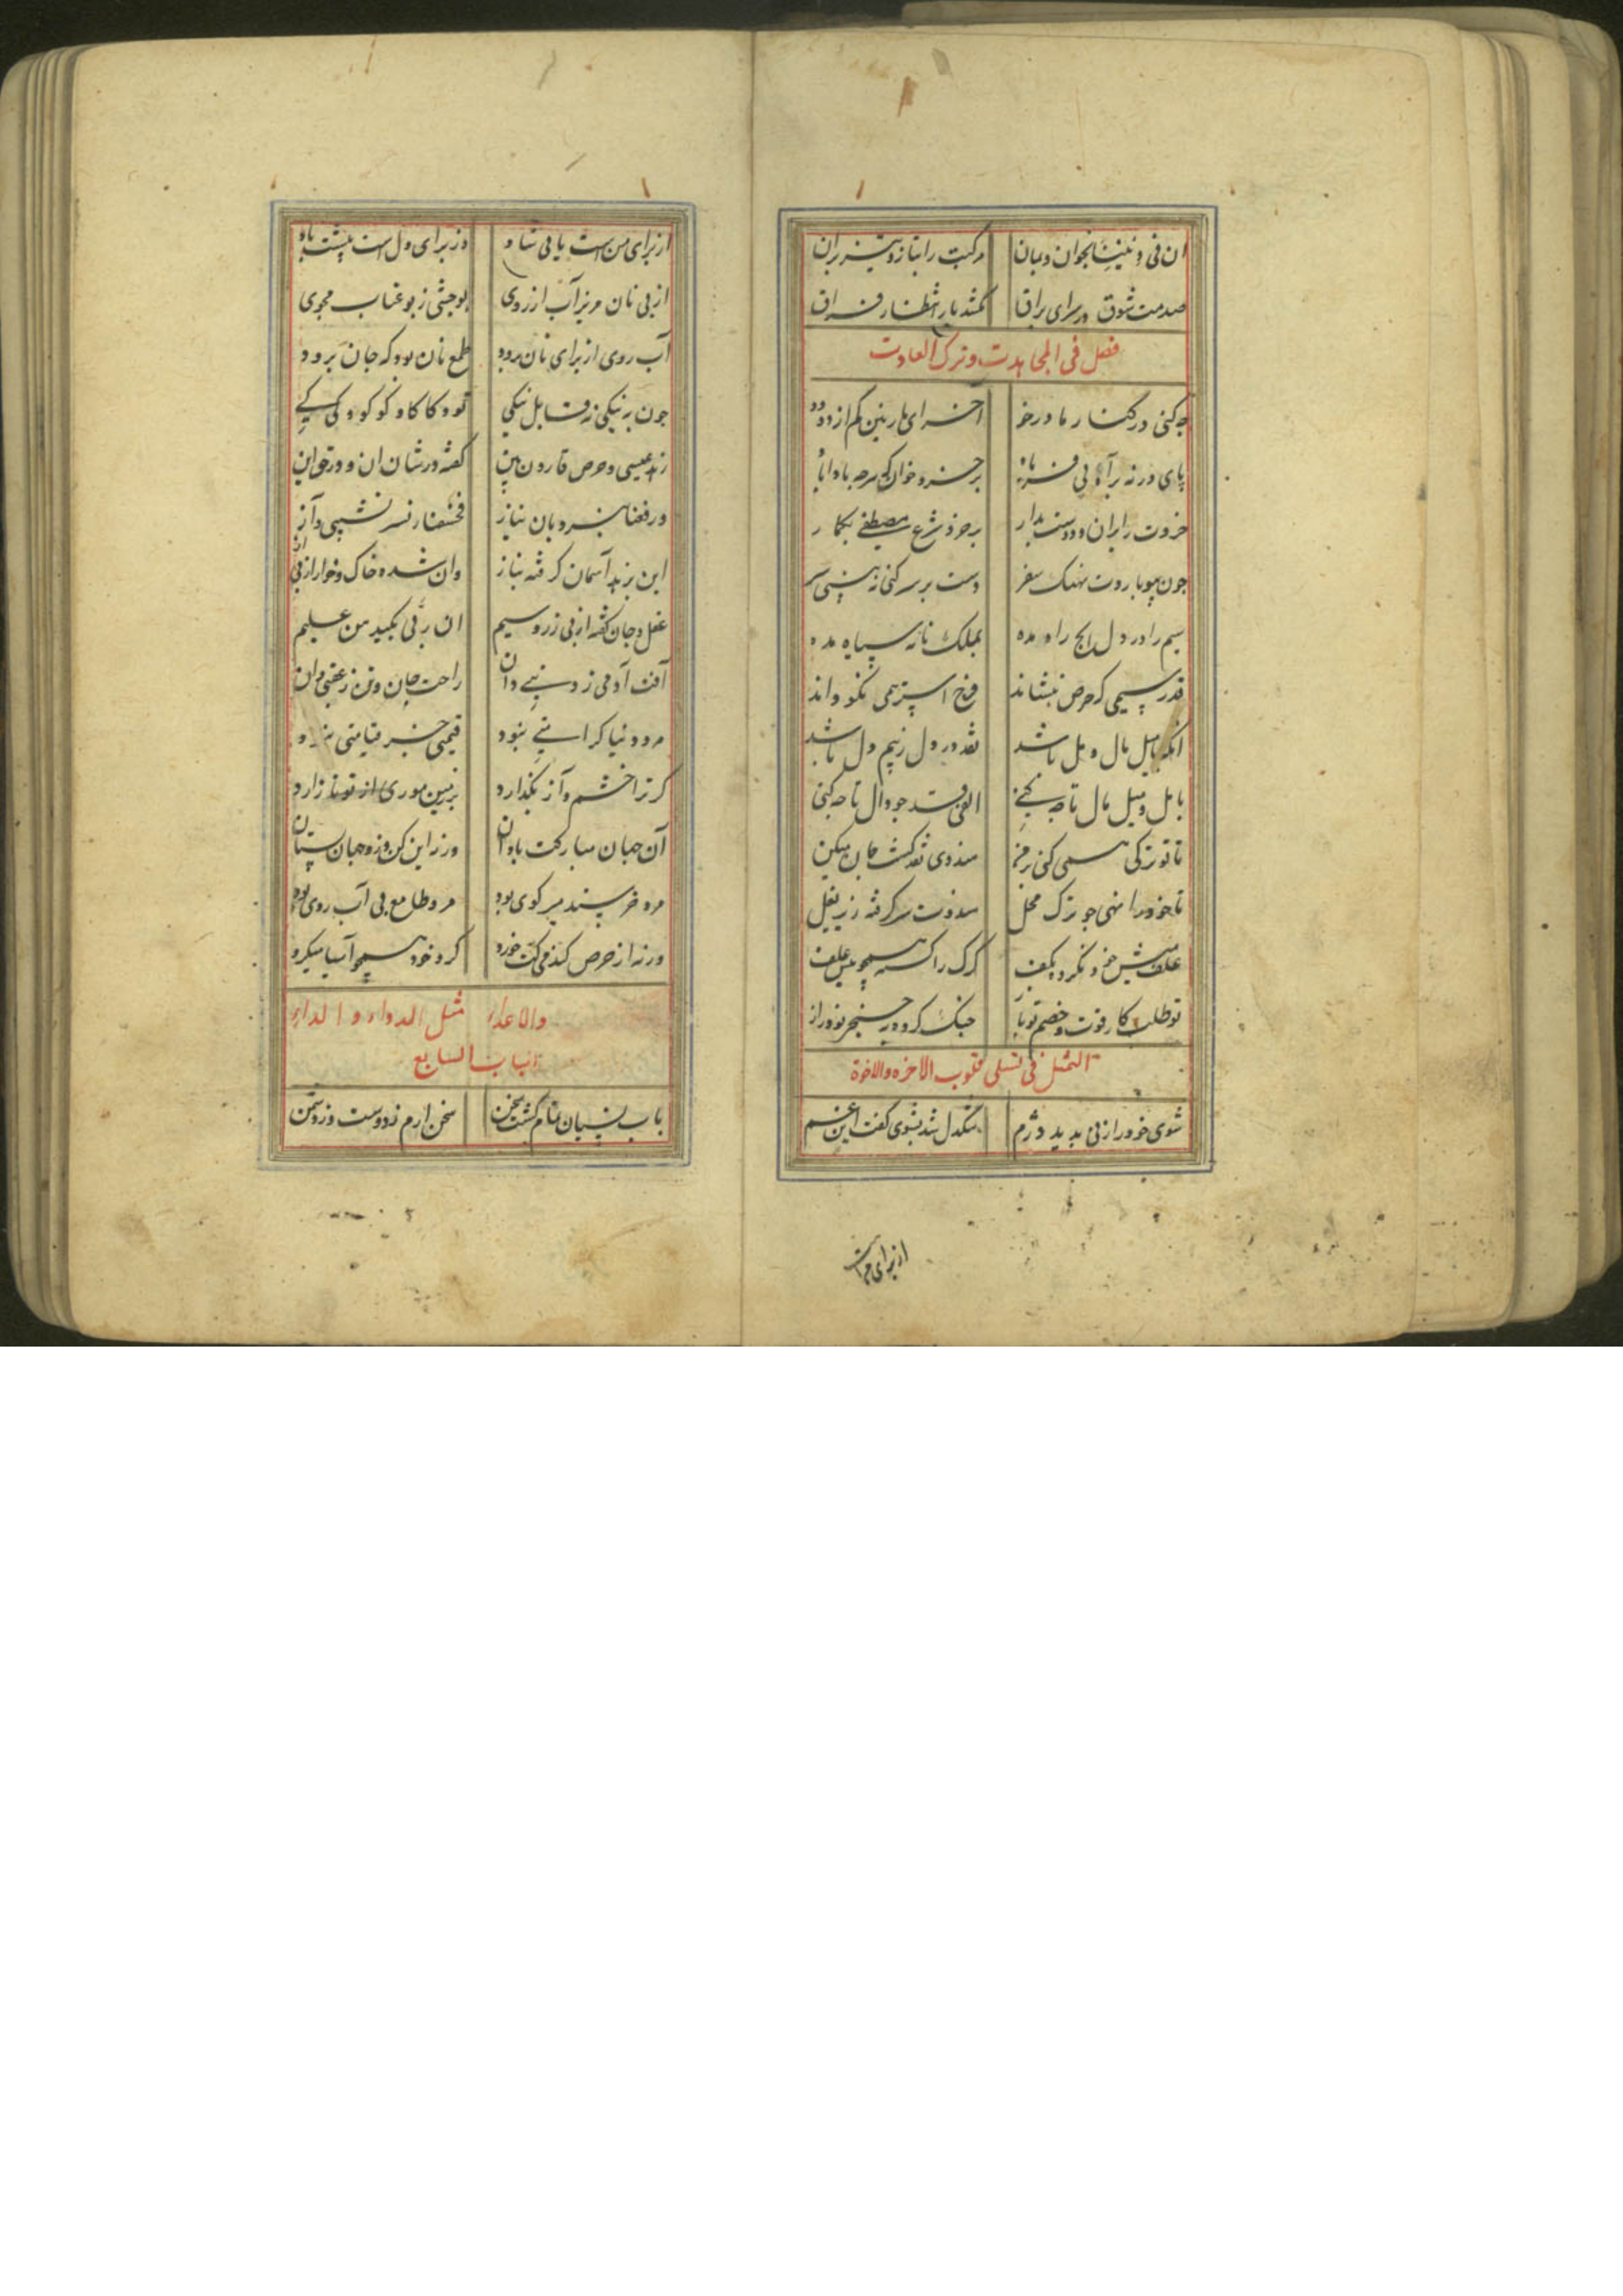 ان فی دینیت بخوان و بدان مرکبت را بتاز و تیز بران
صدمت شوق در سرای براق نکشد بار انتظار فراق
فصل فی المجاهدت و ترک العادت
چه کنی در کنار مادر خو آخر ای نازنین کم از دو دو
پای در نه براه بی فریاد هرچه باداباد
خردت را بران و دوست بدار بر خود شرع مصطفی بکمار
چون بپوبا روت نهنک سفر دست بر سر کنی نه بینی سر
سیم را در دل ایچ راه مده بملک نانه سیاه مده
قدر سیمی که حرص بنشاند فرخ استر همی نکو داند
انکه با میل مال و مل باشد نقد در دل ز بیم دل باشد
با مل و میل مال تا چه کنی الفی قد چو دال تا چه کنی
تا تو ترکی همی کنی هندوی نقد کشت جان مسکین
تا خود را نهی چو ترک محل هندوت سر گرفته زیر بغل
علف میش خود نکرد بکف کرک را کی همچو میش علف
تو طلب کار قوت و خصم تو باز جنک کرده به خنجر تو دراز
التمثل فی تسلی قلوب الاخره و الاخوة
شوی خود را زنی بدید دژم تنکدل شد بشوی کفت این غم
از برای من است
از برای من است یا بی شاد وز برای دل است پیشت باد
از پی نان مریز آب از روی بوجشی ز بو غیاب مجوی
آب روی از برای نان برود طمع نان بود که جان ببرود
چون به نیکی نه قابل نیکی تو و کاکا و کوکو و کی کی
زهد عیسی و حرص قارون بین کفته در شان ان و در حق این
و رفعناه خبر و بان نیاز فخسفنا ز سر نشیبی و آز
این بزهد آسمان کرفته بناز وان شده خاک و خوار از پی آز
عقل و جان کفته از پی زر و سیم ان ربی بکیدهن علیم
آفت آدمی ز دنیی دان راحت جان و تن ز عقبی دان
مرد دنیا کرامتی نبود قیمتی جز قیامتی نبرد
کر ترا خشم و آز نکذارد بر زمین موری از تو نازارد
آن جهان مبارکت باد آن ورنه این کن و زو جهان بستان
مرد خرسند میر کوی بود مرد طامع بی آب روی بود
ورنه از حرص کندمی کت خورد کرد خود همچو آسیا میکرد
والاعداء مثل الدواء و الداء
الباب السابع
باب نسیان تمام کشت سخن سخن ارم ز دوست وز دشمن